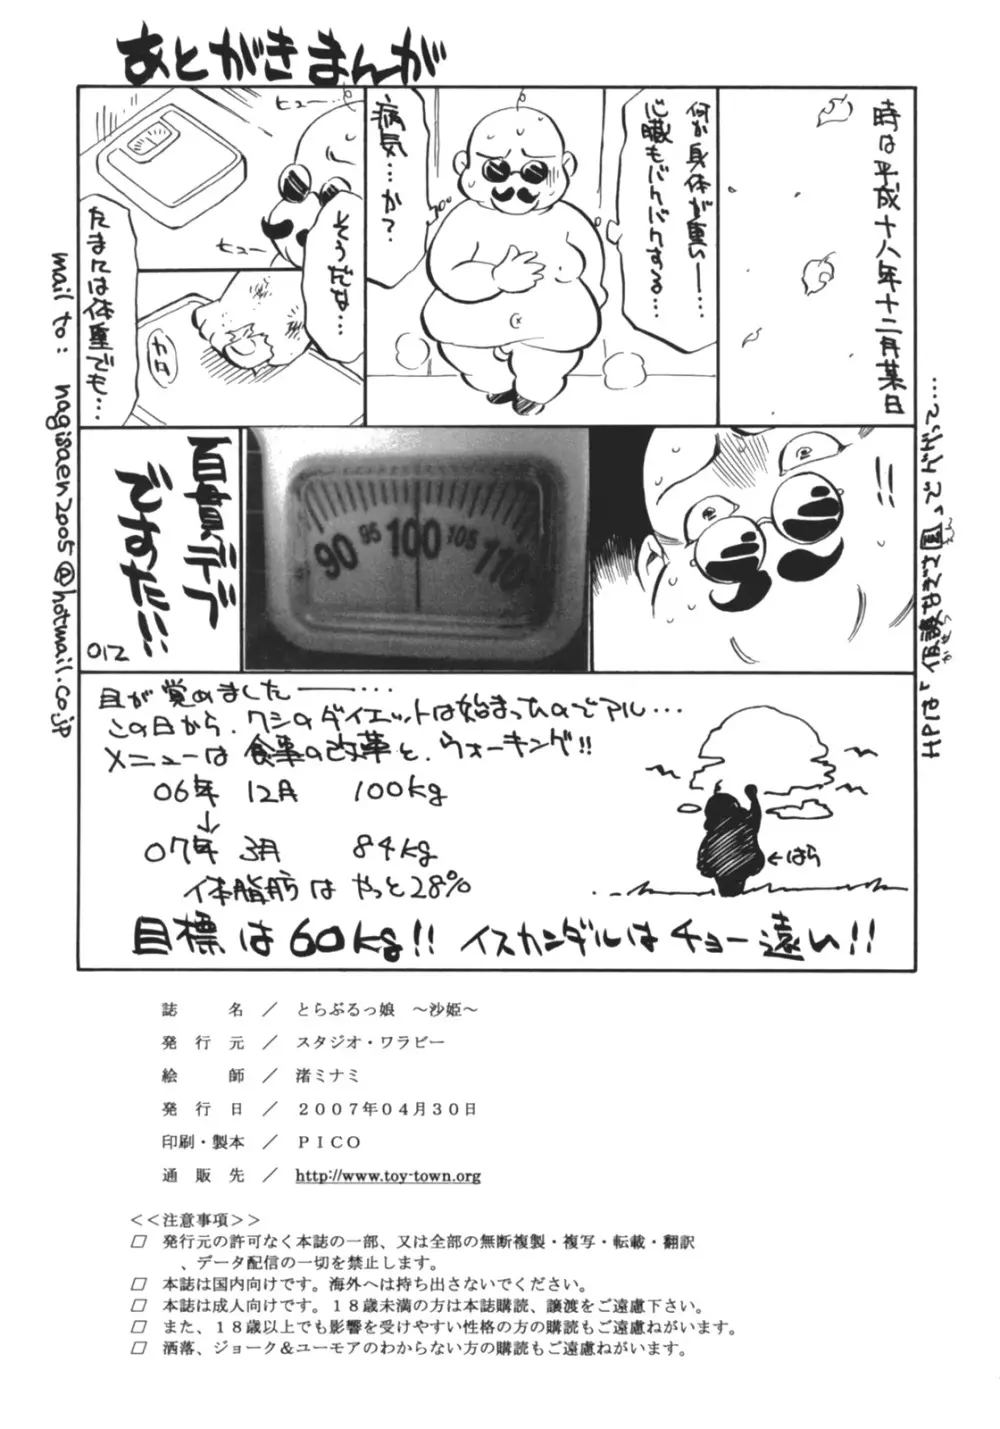 あとがきまんが
時は平成十八年十二月某日
何か身体が重い――…
心臓もバクバクする…
病気…か？
ヒュー…
そうだな…
ヒュー
たまには体重でも…
カタ
!!
90 95 100 105 110
百貫デブ
ですた!!!
012
目が覚めました――…
この日から、ワシのダイエットは始まったのでアル…
メニューは食事の改革と、ウォーキング!!
06年 12月 100kg
↓
07年 3月 84kg
体脂肪はやっと28%
←はら
目標は60kg!! イスカンダルはチョー遠い!!
mail to: nagisaen2005@hotmail.co.jp
誌　名 ／ とらぶるっ娘　～沙姫～
発 行 元 ／ スタジオ・ワラビー
絵　師 ／ 渚ミナミ
発 行 日 ／ ２００７年０４月３０日
印刷・製本 ／ ＰＩＣＯ
通 販 先 ／ http://www.toy-town.org
＜＜注意事項＞＞
□ 発行元の許可なく本誌の一部、又は全部の無断複製・複写・転載・翻訳
、データ配信の一切を禁止します。
□ 本誌は国内向けです。海外へは持ち出さないでください。
□ 本誌は成人向けです。１８歳未満の方は本誌購読、譲渡をご遠慮下さい。
□ また、１８歳以上でも影響を受けやすい性格の方の購読もご遠慮ねがいます。
□ 洒落、ジョーク＆ユーモアのわからない方の購読もご遠慮ねがいます。